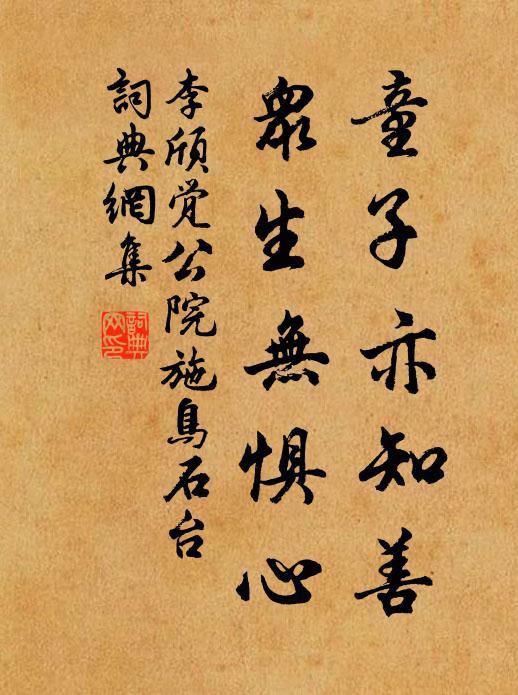 童子亦知善
眾生無惧心
李頎觉公院施鳥石台
詞典網集
詞典网印